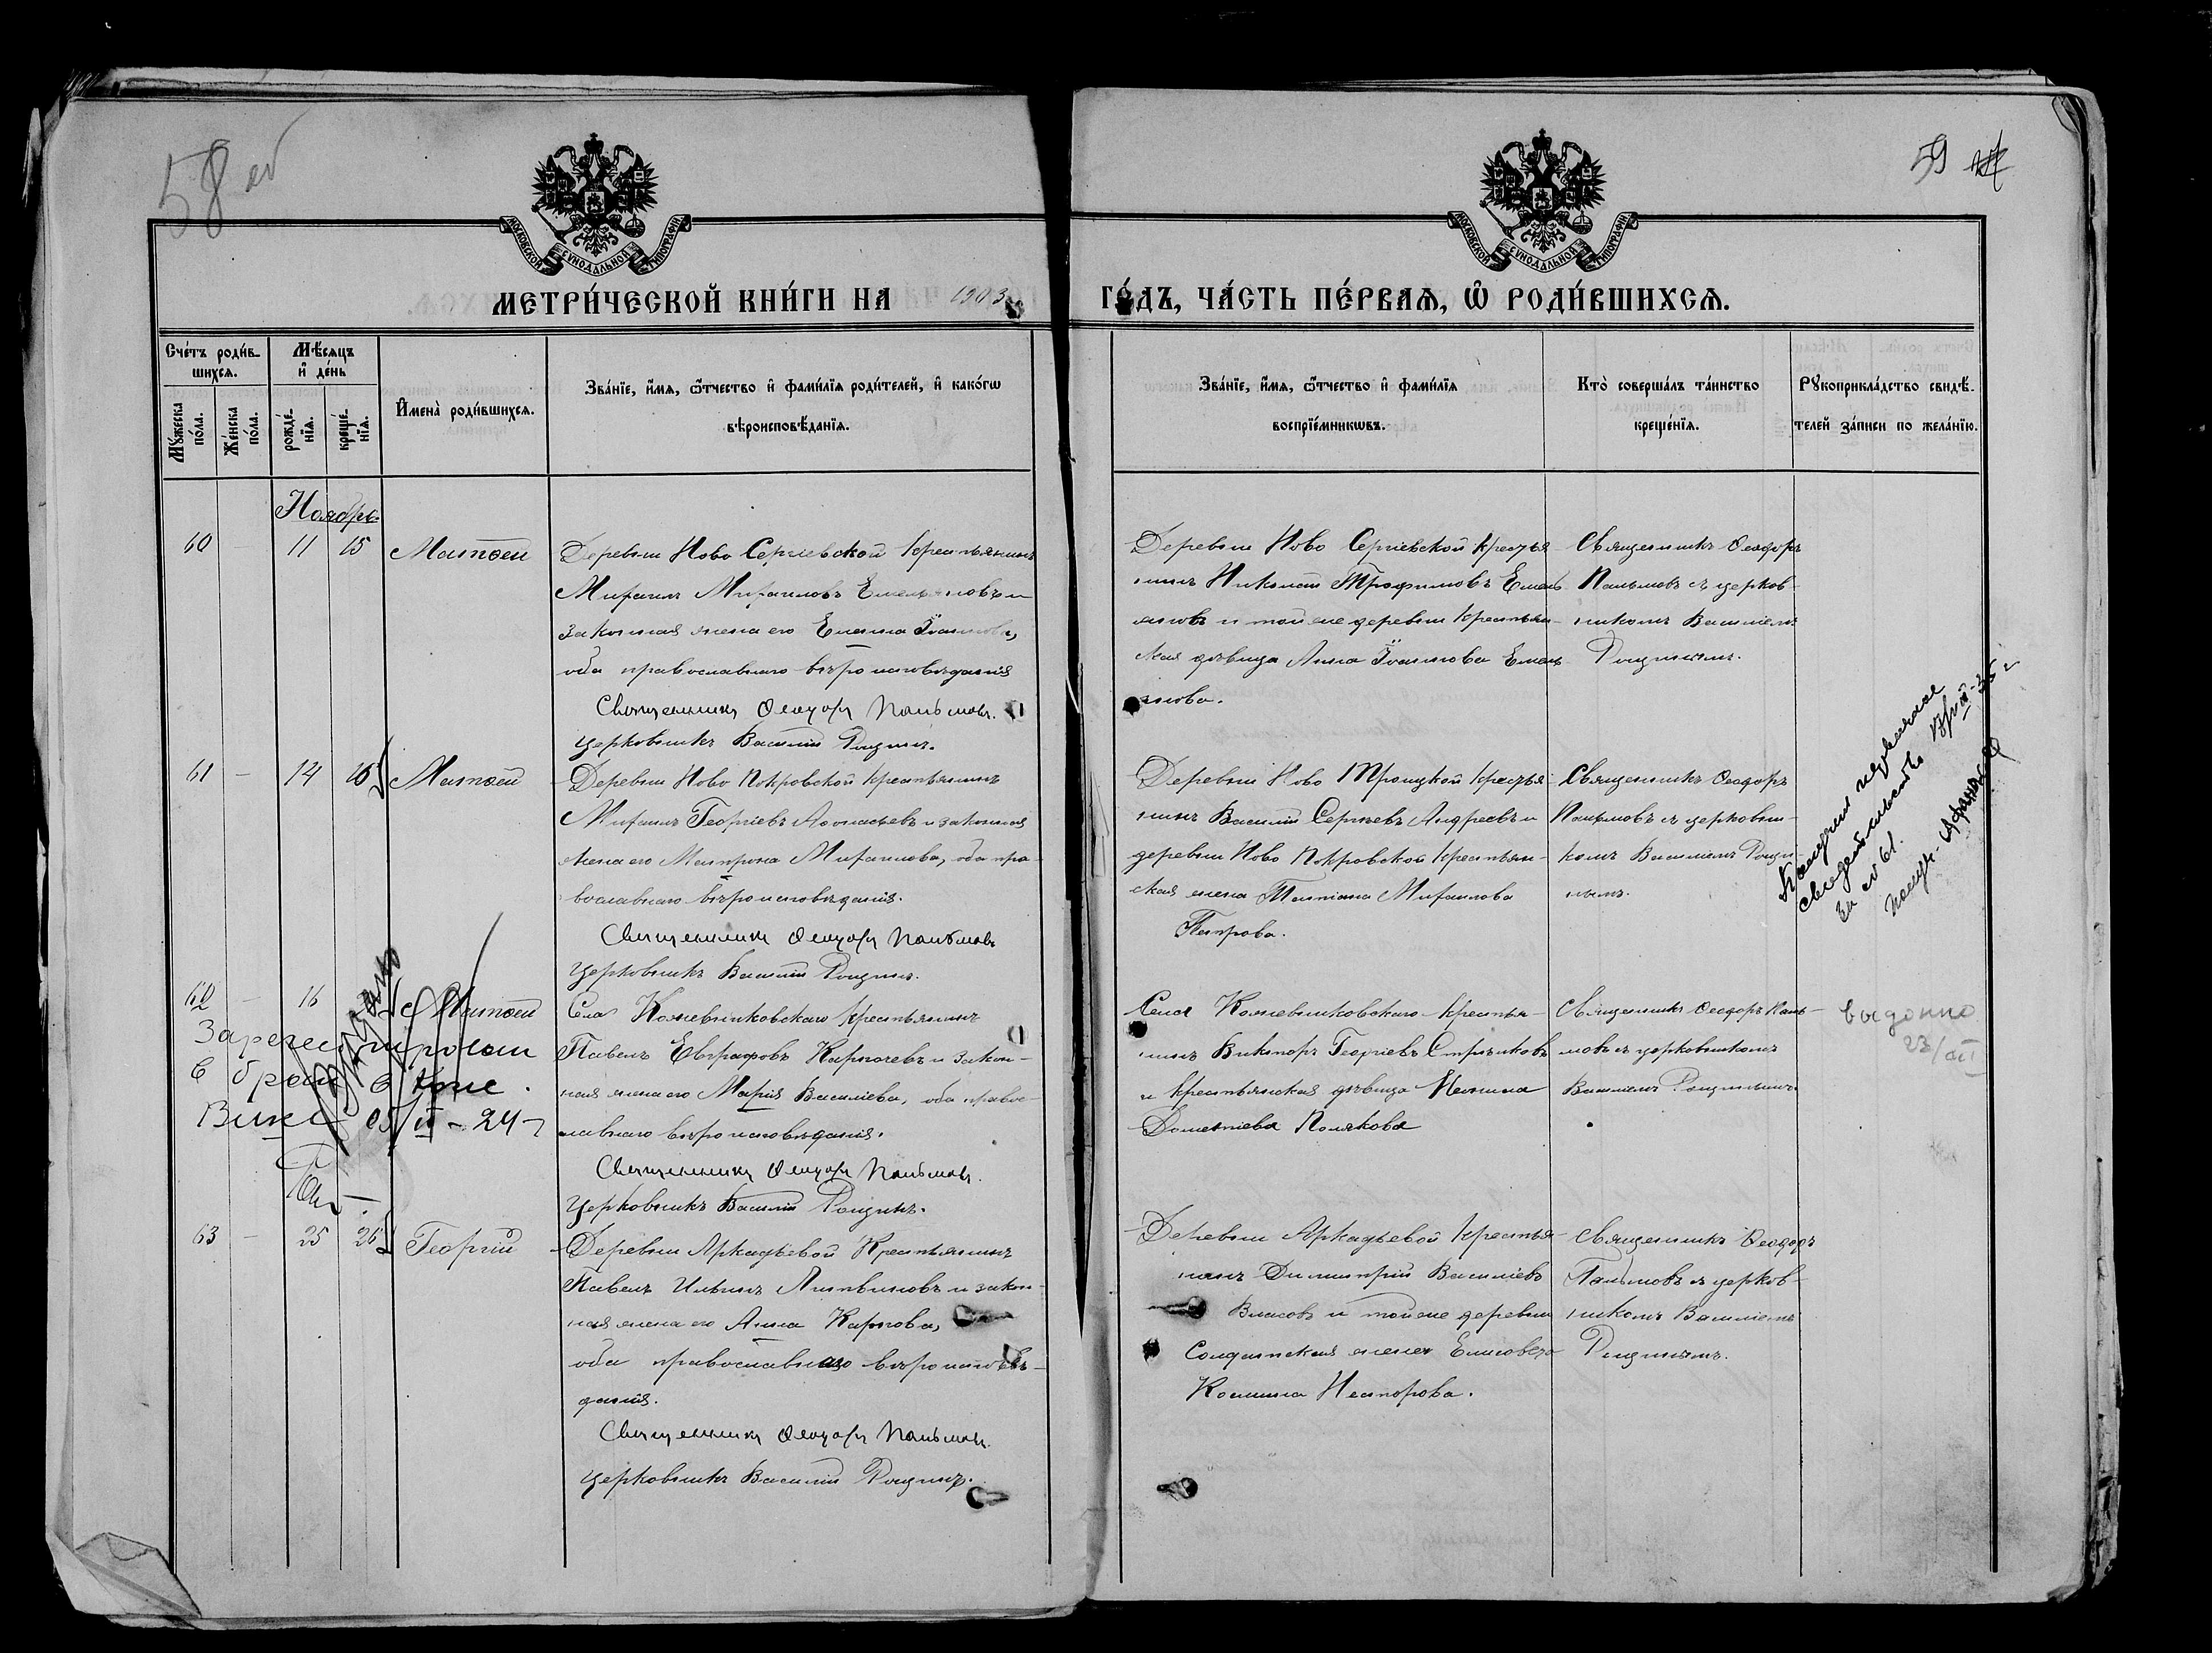 58 об
59
МОСКОВСКОЙ СѴНОДАЛЬНОЙ ТИПОГРАФІИ
МОСКОВСКОЙ СѴНОДАЛЬНОЙ ТИПОГРАФІИ
МЕТРИ́ЧЕСКОЙ КНИ́ГИ НА 1903
ГО́ДЪ, ЧА́СТЬ ПЕ́РВАѦ, Ѡ҆ РОДИ́ВШИХСѦ.
Сче́тъ роди́в-
шихсѧ.
Мꙋ́жеска по́ла.
Же́нска по́ла.
Мѣ́сѧцъ
и҆ де́нь
рожде́-
нїѧ.
креще́-
нїѧ.
И҆мена̀ роди́вшихсѧ.
Зва́нїе, и҆́мѧ, ѻ҆́тчество и҆ фами́лїѧ роди́телей, и҆ како́гѡ
вѣроисповѣ́данїѧ.
Зва́нїе, и҆́мѧ, ѻ҆́тчество и҆ фами́лїѧ
воспрїе́мникѡвъ.
Кто̀ соверша́лъ та́инство
креще́нїѧ.
Рꙋкоприкла́дство свидѣ́-
телей за́писи по жела́нїю.
Ноябрь
60 11 15 Матѳей
Деревни Ново Сергіевской крестьянинъ
Михаилъ Михаиловъ Емельяновъ и
законная жена его Елена Іоаннова,
оба православнаго вѣроисповѣданія
Священникъ Ѳеодоръ Пальмовъ.
Церковникъ Василій Рощинъ.
Деревни Ново Сергіевской крестья-
нинъ Николай Трофимовъ Емель-
яновъ и той же деревни крестьян-
ская дѣвица Анна Іоаннова Емель-
янова.
Священникъ Ѳеодоръ
Пальмовъ съ церков-
никомъ Василіемъ
Рощинымъ.
61 - 14 16 Матѳей
Деревни Ново Покровской крестьянинъ
Михаилъ Георгіевъ Аѳонасьевъ и законная
жена его Матрона Михаилова, оба пра-
вославнаго вѣроисповѣданія.
Священникъ Ѳеодоръ Пальмовъ
Церковникъ Василій Рощинъ.
Деревни Ново Троицкой крестья-
нинъ Василій Сергѣевъ Андреевъ и
деревни Ново Покровской крестьян-
ская жена Татіана Михаилова
Петрова.
Священникъ Ѳеодоръ
Пальмовъ съ церковни-
комъ Василіемъ Рощи-
нымъ.
свидетельство
за № 61.
62 - 16 Матѳей
Села Кожевниковскаго крестьянинъ
Павелъ Евграфовъ Карпачевъ и закон-
ная жена его Марія Василіева, оба право-
славнаго вѣроисповѣданія.
Священникъ Ѳеодоръ Пальмовъ.
Церковникъ Василій Рощинъ.
Зарегистрирован
в брак
Села Кожевниковскаго крестья-
нинъ Викторъ Георгіевъ Стрѣлковъ
и крестьянская дѣвица
Дометіева Полякова
Священникъ Ѳеодоръ Паль-
мовъ съ церковникомъ
Василіемъ Рощинымъ
выданно
63 - 25 26 Георгій
Деревни Аркадьевой Крестьянинъ
Павелъ Ильинъ Литвиновъ и закон-
ная жена его Анна Карпова,
оба православнаго вѣроисповѣ-
данія.
Священникъ Ѳеодоръ Пальмовъ.
Церковникъ Василій Рощинъ.
Деревни Аркадьевой крестья-
нинъ Димитрій Василіевъ
Власовъ и той же деревни
Солдатская жена Елисавета
Космина Несторова.
Священникъ Ѳеодоръ
Пальмовъ съ церков-
никомъ Василіемъ
Рощинымъ.